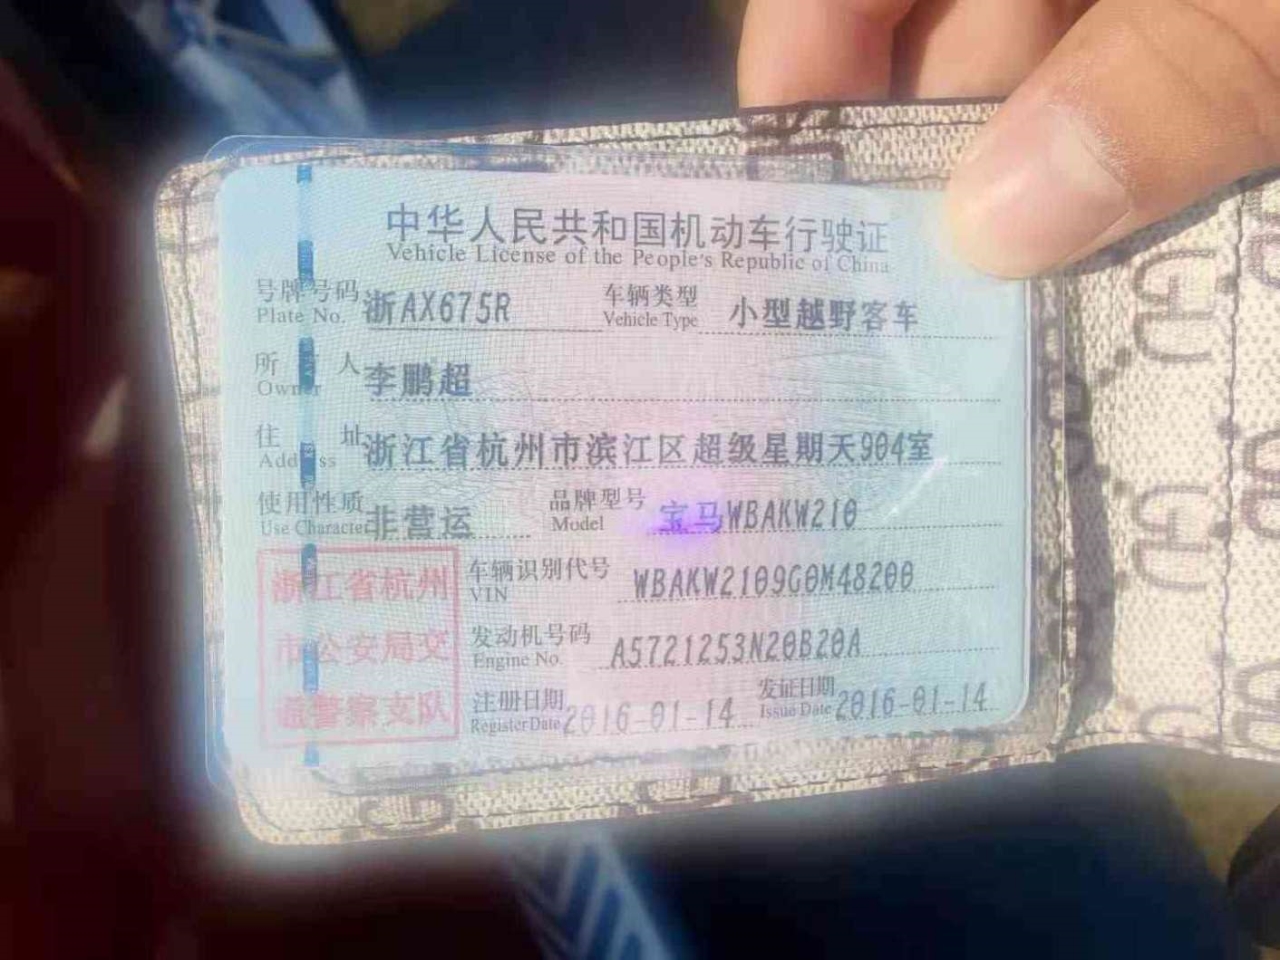 中华人民共和国机动车行驶证
Vehicle License of the People's Republic of China
号牌号码 浙AX675R 车辆类型 小型越野客车
Plate No. Vehicle Type
所 人 李鹏超
Owner
住 址 浙江省杭州市滨江区超级星期天904室
Address
使用性质 非营运 品牌型号 宝马WBAKW210
Use Character Model
浙江省杭州
市公安局交
通警察支队
车辆识别代号 WBAKW2109G0M48200
VIN
发动机号码 A5721253N20B20A
Engine No.
注册日期 2016-01-14 发证日期 2016-01-14
Register Date Issue Date